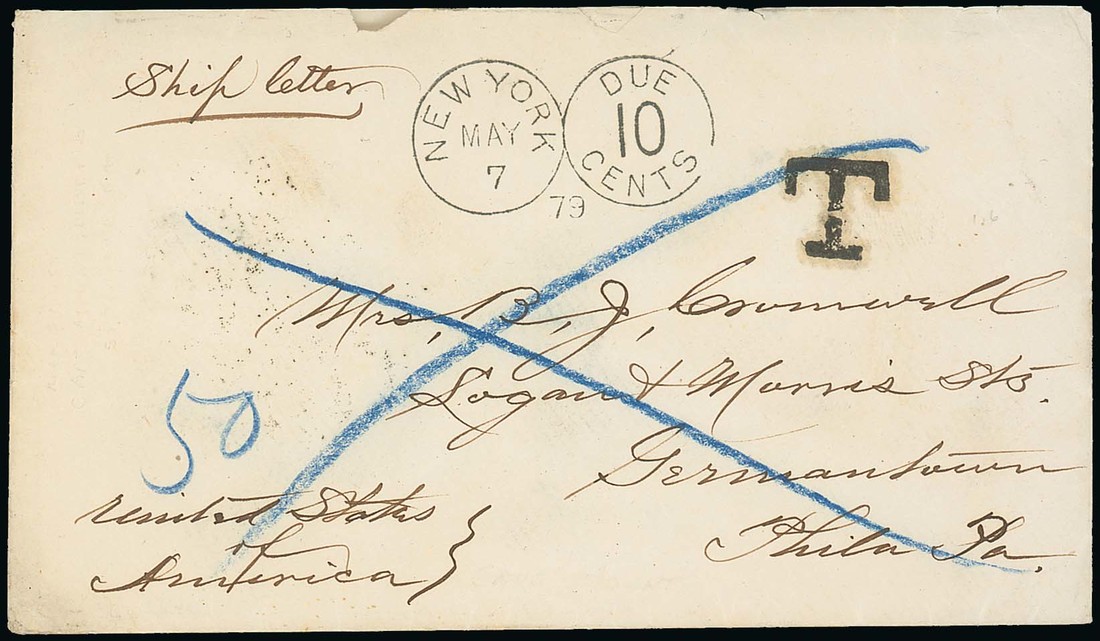 Ship letter
NEW YORK
MAY
7
79
DUE
10
CENTS
T
Mrs, B, J, Cromwell
Logan & Morris Sts.
Germantown
Phila Pa.
50
United States
of
America